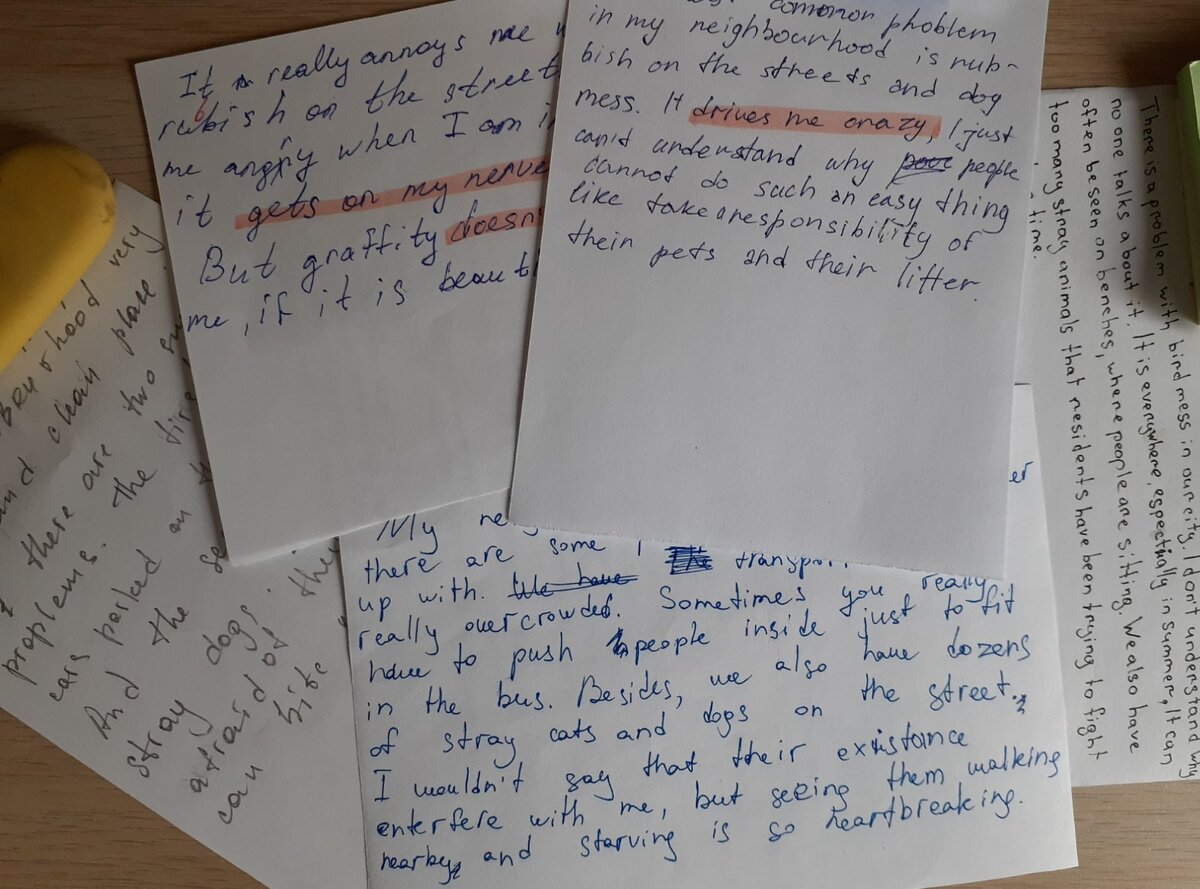 It really annoys me
rubbish on the street
me angry when I am
it gets on my nerve
But graffity doesn
me, if it is beauti
common phoblem
in my neighbourhood is rub-
bish on the streets and dog
mess. It drives me crazy, I just
can't understand why people
cannot do such an easy thing
like take a responsibility of
their pets and their litter.
There is a problem with bird mess in our city. I don't understand why
no one talks about it. It is everywhere, especially in summer, It can
often be seen on benches, where people are sitting. We also have
too many stray animals that residents have been trying to fight
time.
very
and clean place.
there are two
proplems. the
cars parked on
And the
stray dogs.
afraid of
can bite
er
My
there are some
up with. We have really
really overcrowded. Sometimes you
have to push people inside just to fit
in the bus. Besides, we also have dozens
of stray cats and dogs on the street.
I wouldn't say that their existance
enterfere with me, but seeing them walking
nearby, and starving is so heartbreaking.